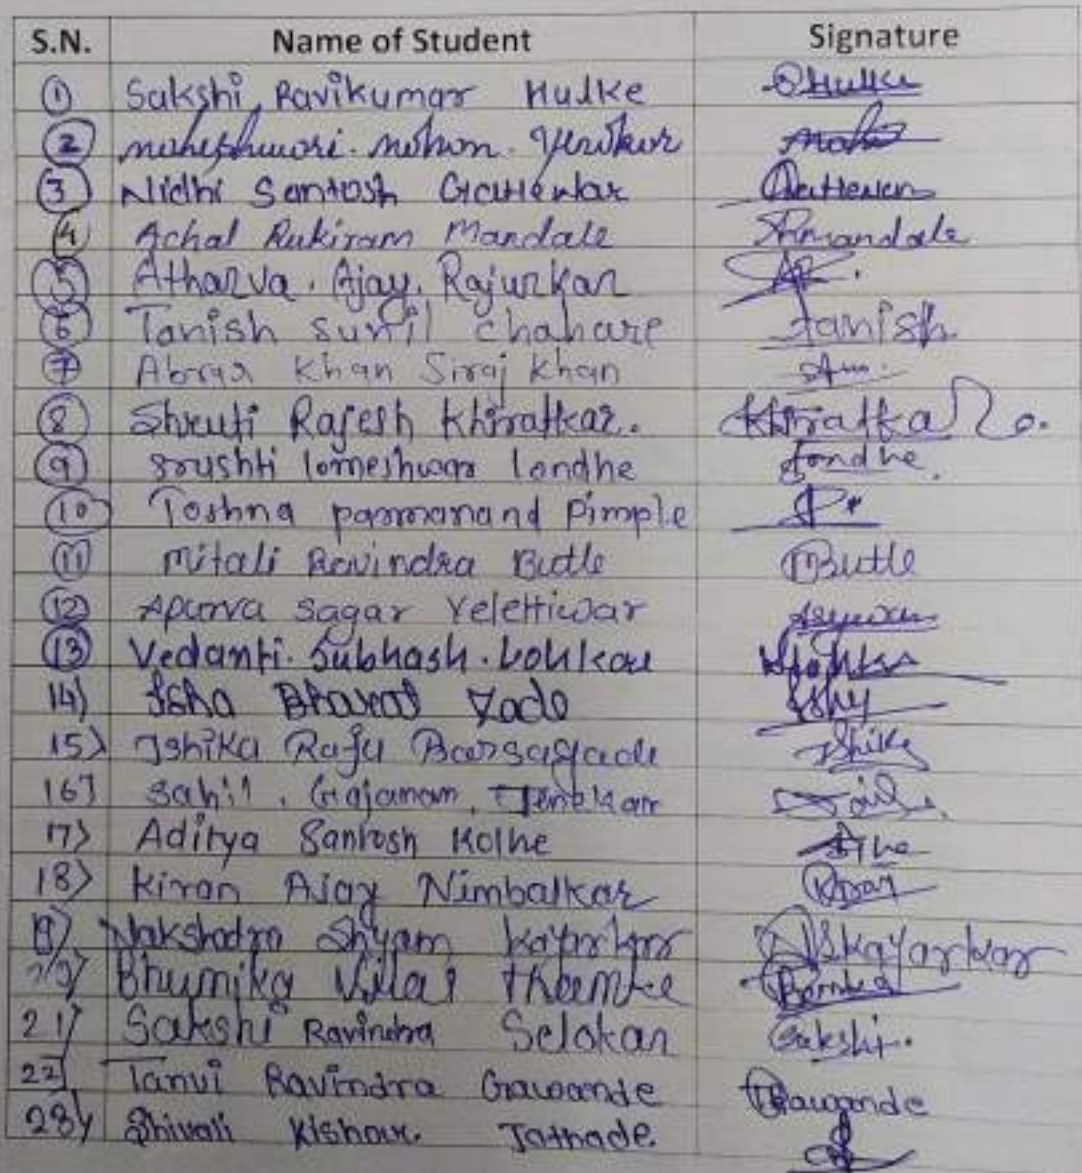 S.N. Name of Student Signature
1 Sakshi Ravikumar Hulke Hulke
2 maheshwari. mohan. Yerokar Mahi
3 Nidhi Santosh Gattewar Gattewar
4 Achal Rukiram Mandale Mandale
5 Atharva. Ajay. Rajurkar AR.
6 Tanish sunil chahare Tanish
7 Abrar Khan Siraj Khan
8 Shruti Rajesh Khiratkar. Khiratkar
9 srushti lomeshwar londhe londhe.
10 Toshna parmanand Pimple
11 Mitali Ravindra Butle MButle
12 Apurva Sagar Yelettiwar
13 Vedanti. Subhash. Lohkare
14) Isha Bharat Zade Ishu
15) Ishika Raju Barsagade Ishika
16] Sahil. Gajanan.
17) Aditya Santosh Kolhe
18) Kiran Ajay Nimbalkar Kiran
19) Nakshatra Shyam Kayarkar NSkayarkar
20) Bhumika Vilas Thaemke
21) Sakshi Ravindra Selokar Sakshi.
22) Tanvi Ravindra Gawande TGawande
23) Shivali Kishor. Jathade.